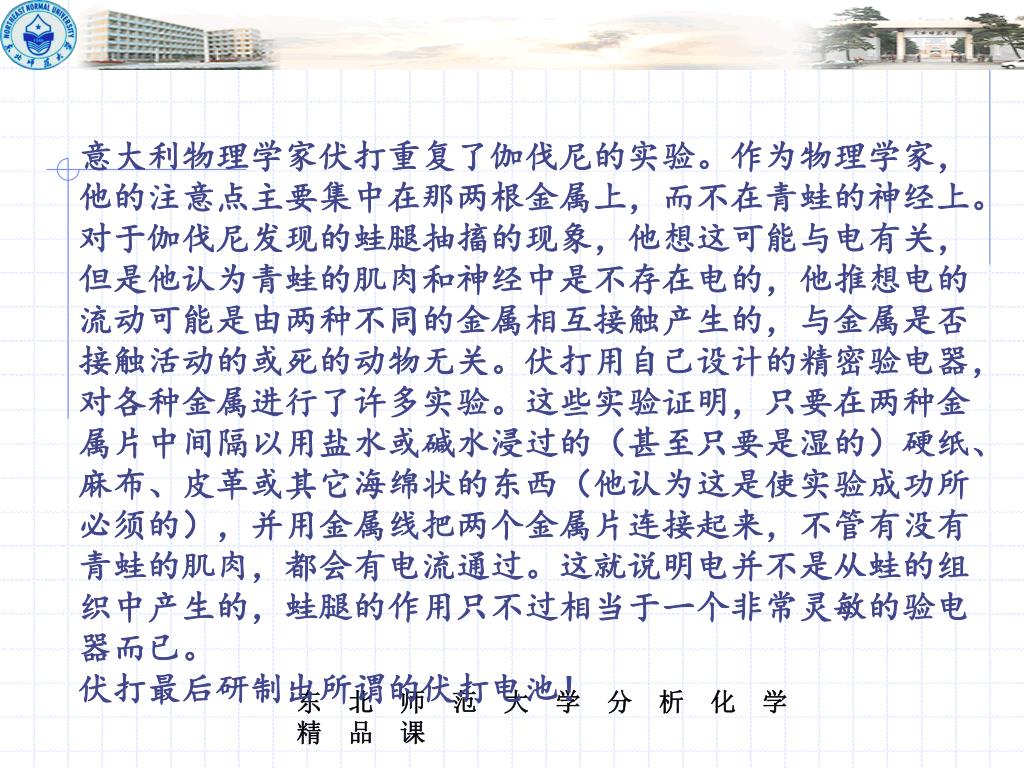 NORTHEAST NORMAL UNIVERSITY
东北师范大学
意大利物理学家伏打重复了伽伐尼的实验。作为物理学家，
他的注意点主要集中在那两根金属上，而不在青蛙的神经上。
对于伽伐尼发现的蛙腿抽搐的现象，他想这可能与电有关，
但是他认为青蛙的肌肉和神经中是不存在电的，他推想电的
流动可能是由两种不同的金属相互接触产生的，与金属是否
接触活动的或死的动物无关。伏打用自己设计的精密验电器，
对各种金属进行了许多实验。这些实验证明，只要在两种金
属片中间隔以用盐水或碱水浸过的（甚至只要是湿的）硬纸、
麻布、皮革或其它海绵状的东西（他认为这是使实验成功所
必须的），并用金属线把两个金属片连接起来，不管有没有
青蛙的肌肉，都会有电流通过。这就说明电并不是从蛙的组
织中产生的，蛙腿的作用只不过相当于一个非常灵敏的验电
器而已。
伏打最后研制出所谓的伏打电池！
东北师范大学分析化学
精品课